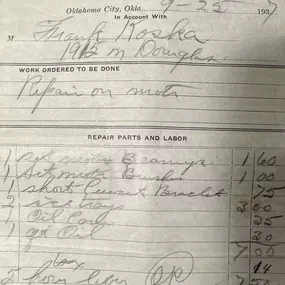 Oklahoma City, Okla. 9-25 193
In Account With
M Frank Koska
1912 N Douglas
WORK ORDERED TO BE DONE
Repair on motor
REPAIR PARTS AND LABOR
1 set motor Bearings 1 60
1 Set motor Brushes 1 00
1 short Bracket 75
2 ice trays 3 00
Oil Can 25
1 qt Oil 30
7 00
tax 14
2 hours labor 50